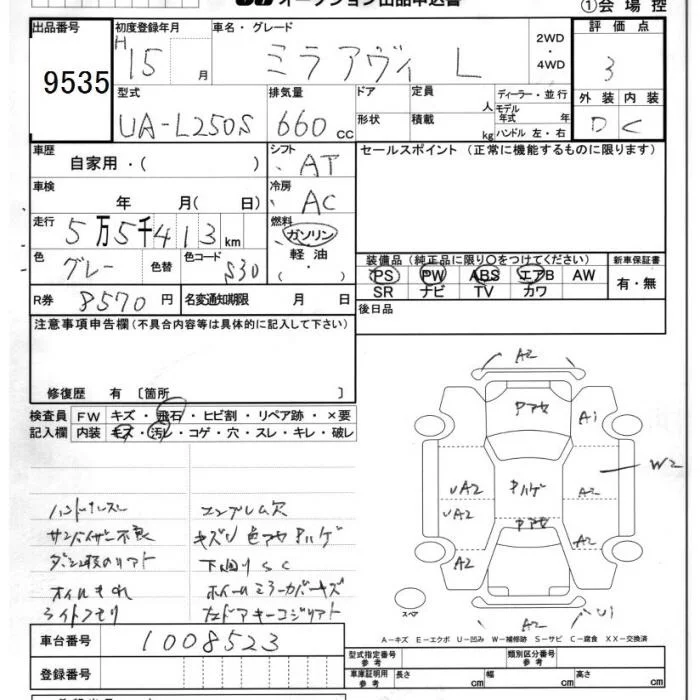 オークション出品申込書
①会場控
出品番号 初度登録年月 車名・グレード 2WD・4WD 評価点
9535 H 15 月 ミラアヴィ L 3
型式 排気量 ドア 定員 人 ディーラー・並行 外装 内装
UA-L250S 660 cc 形状 積載 kg モデル年式 年 ハンドル 左・右 D C
車歴 自家用・( ) シフト AT セールスポイント (正常に機能するものに限ります)
車検 年 月( 日) 冷房 AC
走行 5万5千413 km 燃料 ガソリン 軽油 ( ・ )
色 グレー 色替 色コード S30 装備品 (純正品に限り○をつけてください) 新車保証書
PS PW ABS エアB AW 有・無
SR ナビ TV カワ
R券 8570 円 名変通知期限 月 日 後日品
注意事項申告欄(不具合内容等は具体的に記入して下さい)
修復歴 有 〔箇所 〕
検査員 FW キズ・飛石・ヒビ割・リペア跡・×要
記入欄 内装 キズ・汚レ・コゲ・穴・スレ・キレ・破レ
ハンドルスレ エンブレム欠
サンバイザー不良 キズU色アセPハゲ
下廻りSC
オイルもれ ホイールミラーカバーキズ
ライトクモリ
A2
Pアセ
A1
W2
UA2 Pハゲ A2
UA2 Pアセ
A2 A2
スペア A2 U1
A-キズ E-エクボ U-凹み W-補修跡 S-サビ C-腐食 XX-交換済
車台番号 1008523
型式指定番号 参考 類別区分番号 参考
登録番号 車庫証明用 参考 長さ cm 幅 cm 高さ cm